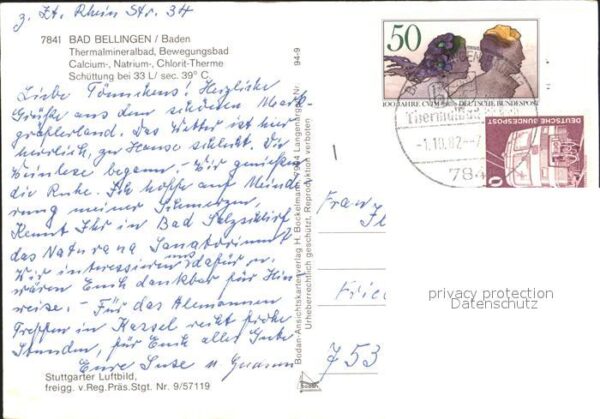 z. Zt. Rhein Str. 34
7841 BAD BELLINGEN / Baden
Thermalmineralbad, Bewegungsbad
Calcium-, Natrium-, Chlorit-Therme
Schüttung bei 33 L/ sec. 39° C.
Liebe Tönnikens! Herzliche
Grüße aus dem schönen Mark-
gräflerland. Das Wetter ist hier
herrlich, zur Hause schlecht. Die
Weinlese begann. Wir genießen
die Ruhe. Ich hoffe auf Minde
rung meiner Schmerzen.
Kennt Ihr in Bad Salzschlirf
das Naturana Sanatorium?
Wir interessieren uns dafür u.
wären Euch dankbar für Hin
weise. - Für das Alemannen
Treffen in Kassel recht frohe
Stunden, für Euch alles Gute
Eure Suse u
Stuttgarter Luftbild,
freigg. v. Reg. Präs. Stgt. Nr. 9/57119
94-9
Bodan-Ansichtskartenverlag H. Bockelmann, 7994 Langenargen
Urheberrechtlich geschützt. Reproduktion verboten
50
100 JAHRE CVJM DEUTSCHE BUNDESPOST
DEUTSCHE BUNDESPOST
Thermalbad
-1.10.82
784
Franz
753
privacy protection
Datenschutz